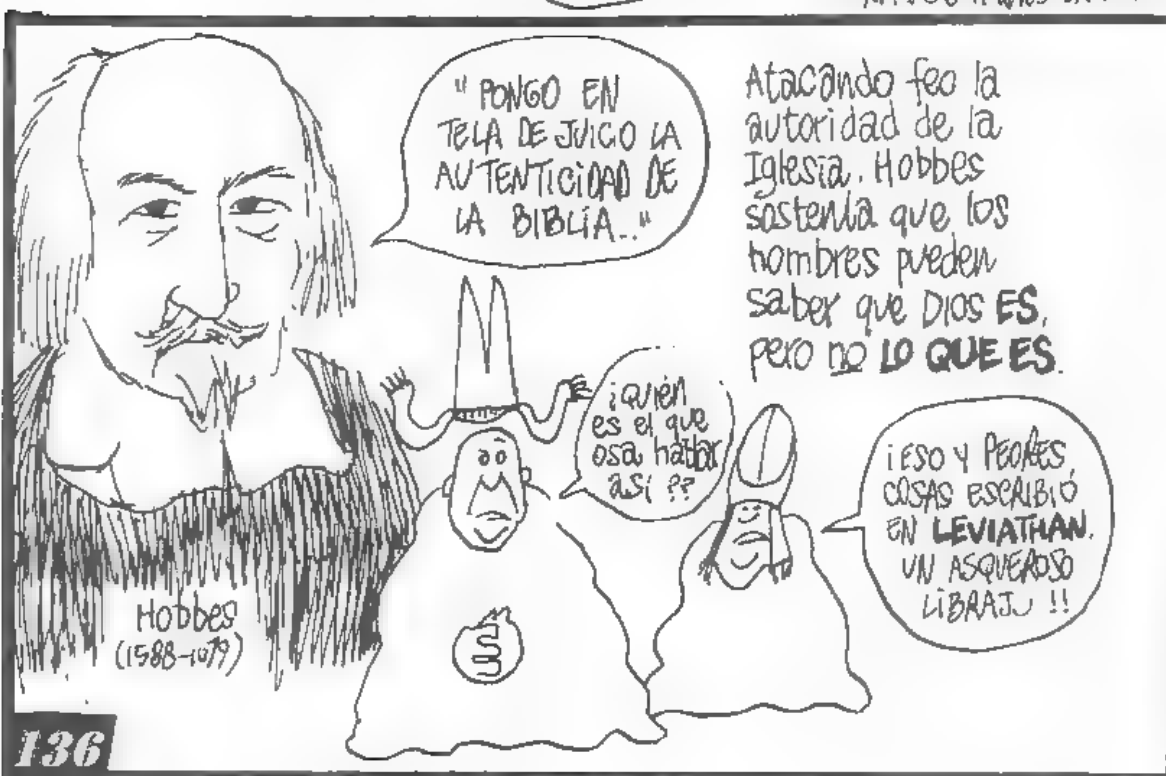 " PONGO EN
TELA DE JUICO LA
AUTENTICIDAD DE
LA BIBLIA..."
Atacando feo la
autoridad de la
Iglesia, Hobbes
sostenía que los
hombres pueden
saber que Dios ES,
pero no LO QUE ES.
¡Quién
es el que
osa hablar
así ??
¡ESO Y PEORES
COSAS ESCRIBIÓ
EN LEVIATHAN.
UN ASQUEROSO
!!
Hobbes
(1588-1679)
136